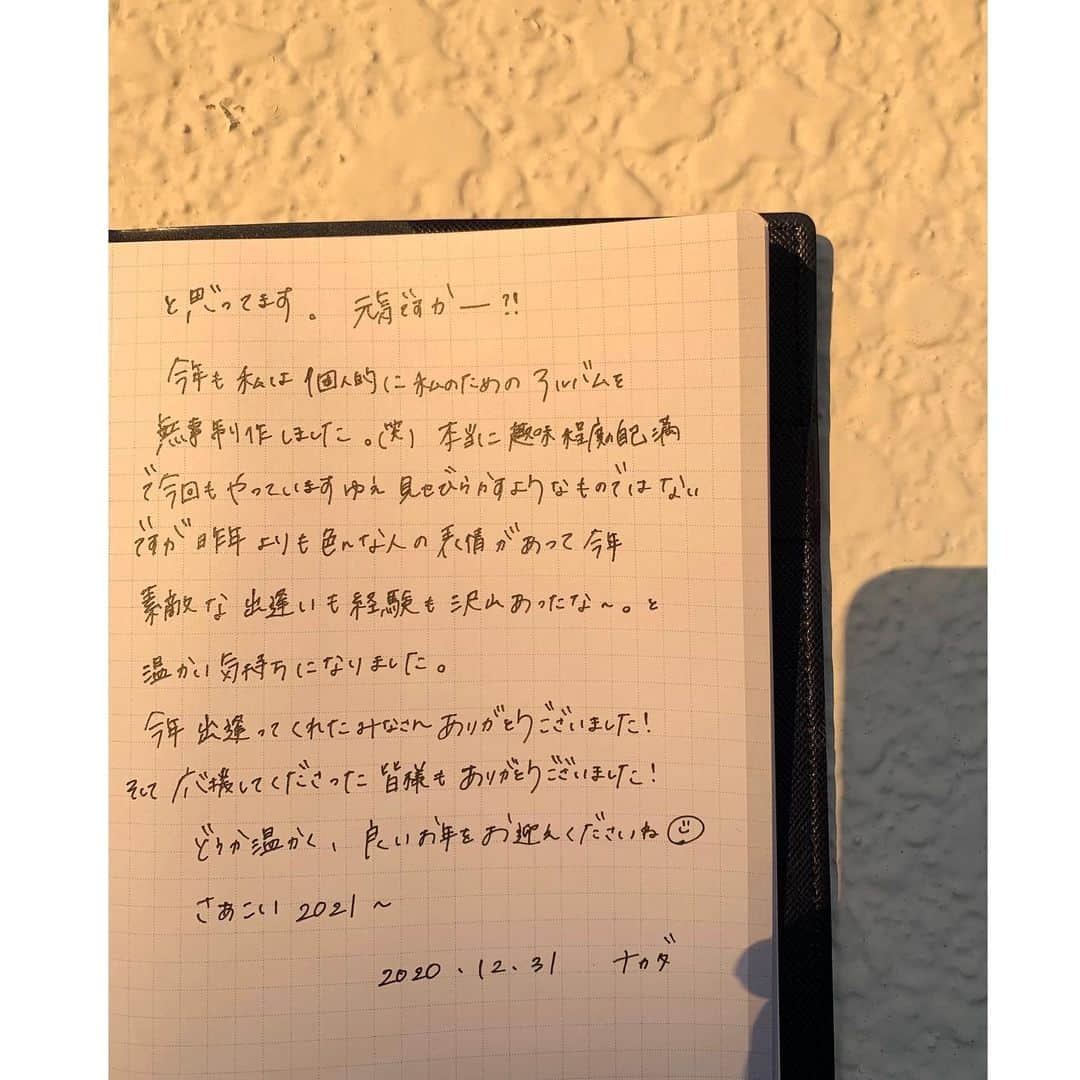 と思ってます。 元気ですかー?!
今年も私は個人的に私のためのアルバムを
無事制作しました。(笑) 本当に趣味程度自己満
で今回もやっていますゆえ見せびらかすようなものではない
ですが昨年よりも色んな人の表情があって今年
素敵な出逢いも経験も沢山あったな〜。と
温かい気持ちになりました。
今年出逢ってくれたみなさんありがとうございました!
そして応援してくださった皆様もありがとうございました!
どうか温かく、良いお年をお迎えくださいね☺
さあこい 2021〜
2020.12.31 ナカダ